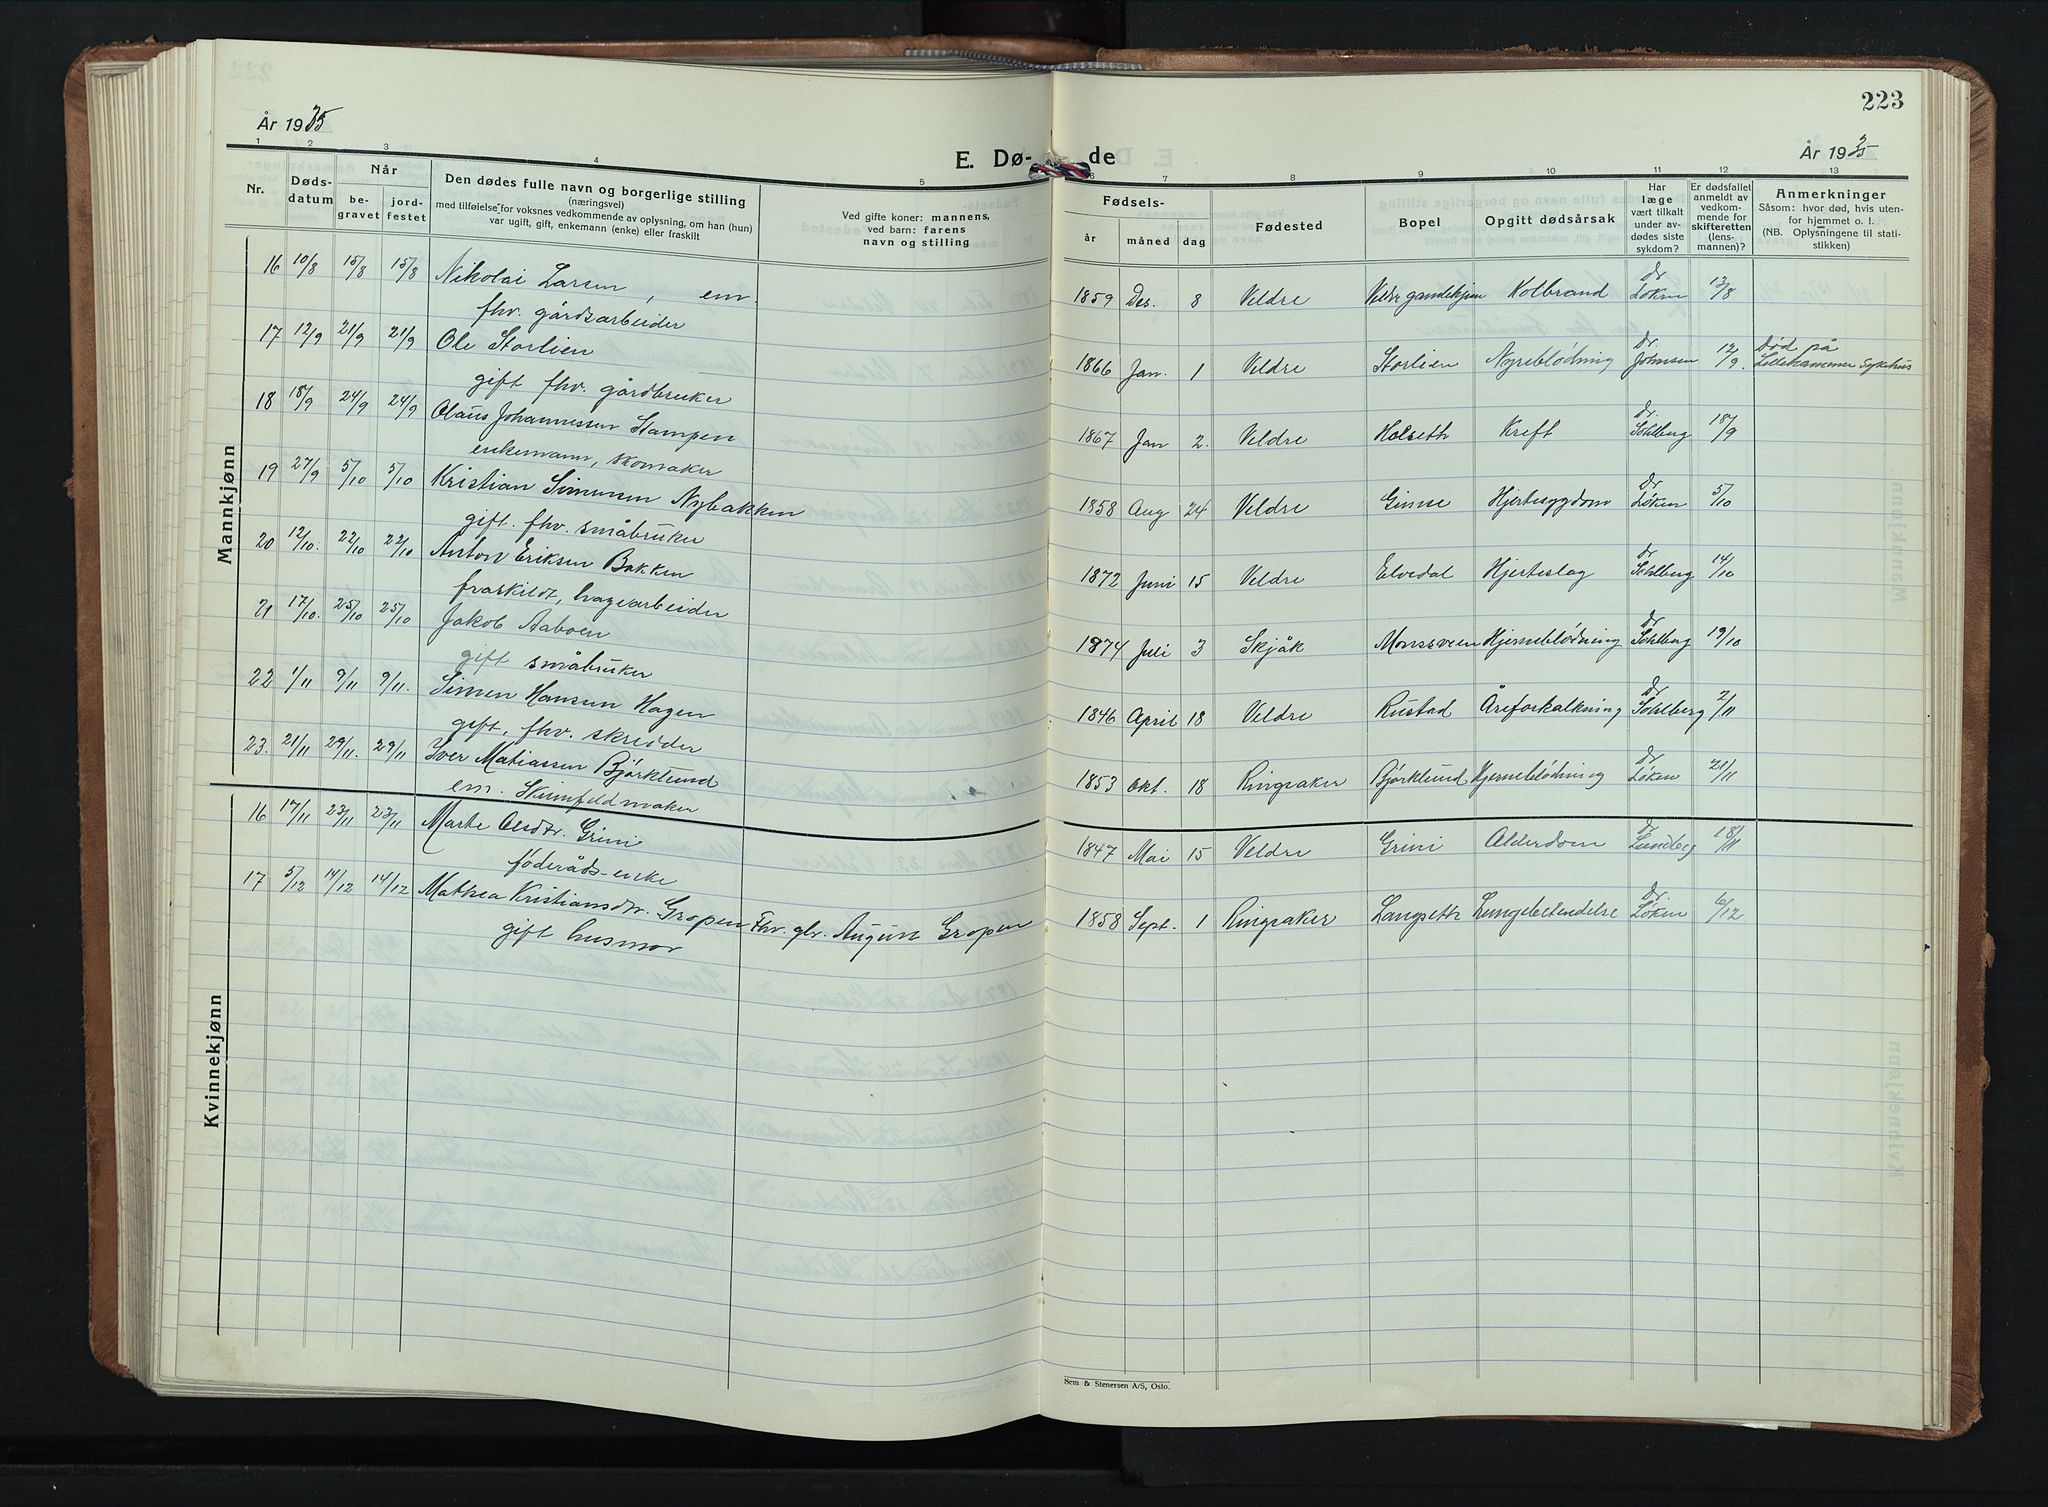 223
År 1935
E. Dø-
de
År 1935
1 2 3 4 5 6 7 8 9 10 11 12 13
Nr.
Døds-
datum
Når
be-
gravet
jord-
festet
Den dødes fulle navn og borgerlige stilling
(næringsvei)
med tilføielse for voksnes vedkommende av oplysning, om han (hun)
var ugift, gift, enkemann (enke) eller fraskilt
Ved gifte koner: mannens,
ved barn: farens
navn og stilling
Fødsels-
år måned dag
Fødested
Bopel
Opgitt dødsårsak
Har
læge
vært tilkalt
under av-
dødes siste
sykdom?
Er dødsfallet
anmeldt av
vedkom-
mende for
skifteretten
(lens-
mannen)?
Anmerkninger
Såsom: hvor død, hvis uten-
for hjemmet o. l.
(NB. Oplysningene til stati-
stikken)
Mannkjønn
16 10/8 15/8 15/8 Nikolai Larsen, em.
fhv. gårdsarbeider
1859 Des. 8 Veldre Kolbrand Dr Løken 13/8
17 12/9 21/9 21/9 Ole Storlien
gift fhv. gårdbruker
1866 Jan. 1 Veldre Storlien Nyreblödning Dr. Johnsen 12/9. Död på
Lillehammer Sykehus
18 18/9 24/9 24/9 Olaus Johannessen Stampen
enkemann, skomaker
1867 Jan 2. Veldre Holseth Kreft Dr. Sohlberg 18/9
19 27/9 5/10 5/10 Kristian Simensen Nybakken
gift. fhv. småbruker
1858 Aug 24 Veldre Gimse Hjertesygdom Dr Løken 5/10
20 12/10. 22/10 22/10 Anton Eriksen Bakken
fraskildt, hagearbeider
1872 Juni 15 Veldre Elvedal Hjerteslag Dr Sohlberg 14/10
21 17/10. 25/10 25/10 Jakob Aaboen
gift småbruker
1874 Juli 3 Skjåk Monssveen Hjerneblödning Dr Sohlberg 19/10
22 1/11 9/11 9/11. Simen Hansen Hagen
gift, fhv. skredder
1846 April 18 Veldre Rustad Åreforkalkning Dr Sohlberg 2/11
23. 21/11 29/11. 29/11 Iver Matiassen Björklund
em. Skinnfeldmaker
1853 Okt. 18 Ringsaker Björklund Hjerneblödning Dr Løken 21/11
Kvinnekjønn
16 17/11 23/11 23/11 Marte Olsdtr. Grini
föderåds-enke
1847 Mai 15 Veldre Grini Alderdom Dr Lundbg 18/11
17 5/12 14/12 14/12 Mathea Kristiansdtr. Gropen Fhv. gbr. August Gropen
gift husmor
1858 Sept. 1 Ringsaker Langseth Lungebetendelse Dr. Løken 6/12
Sem & Stenersen A/S, Oslo.